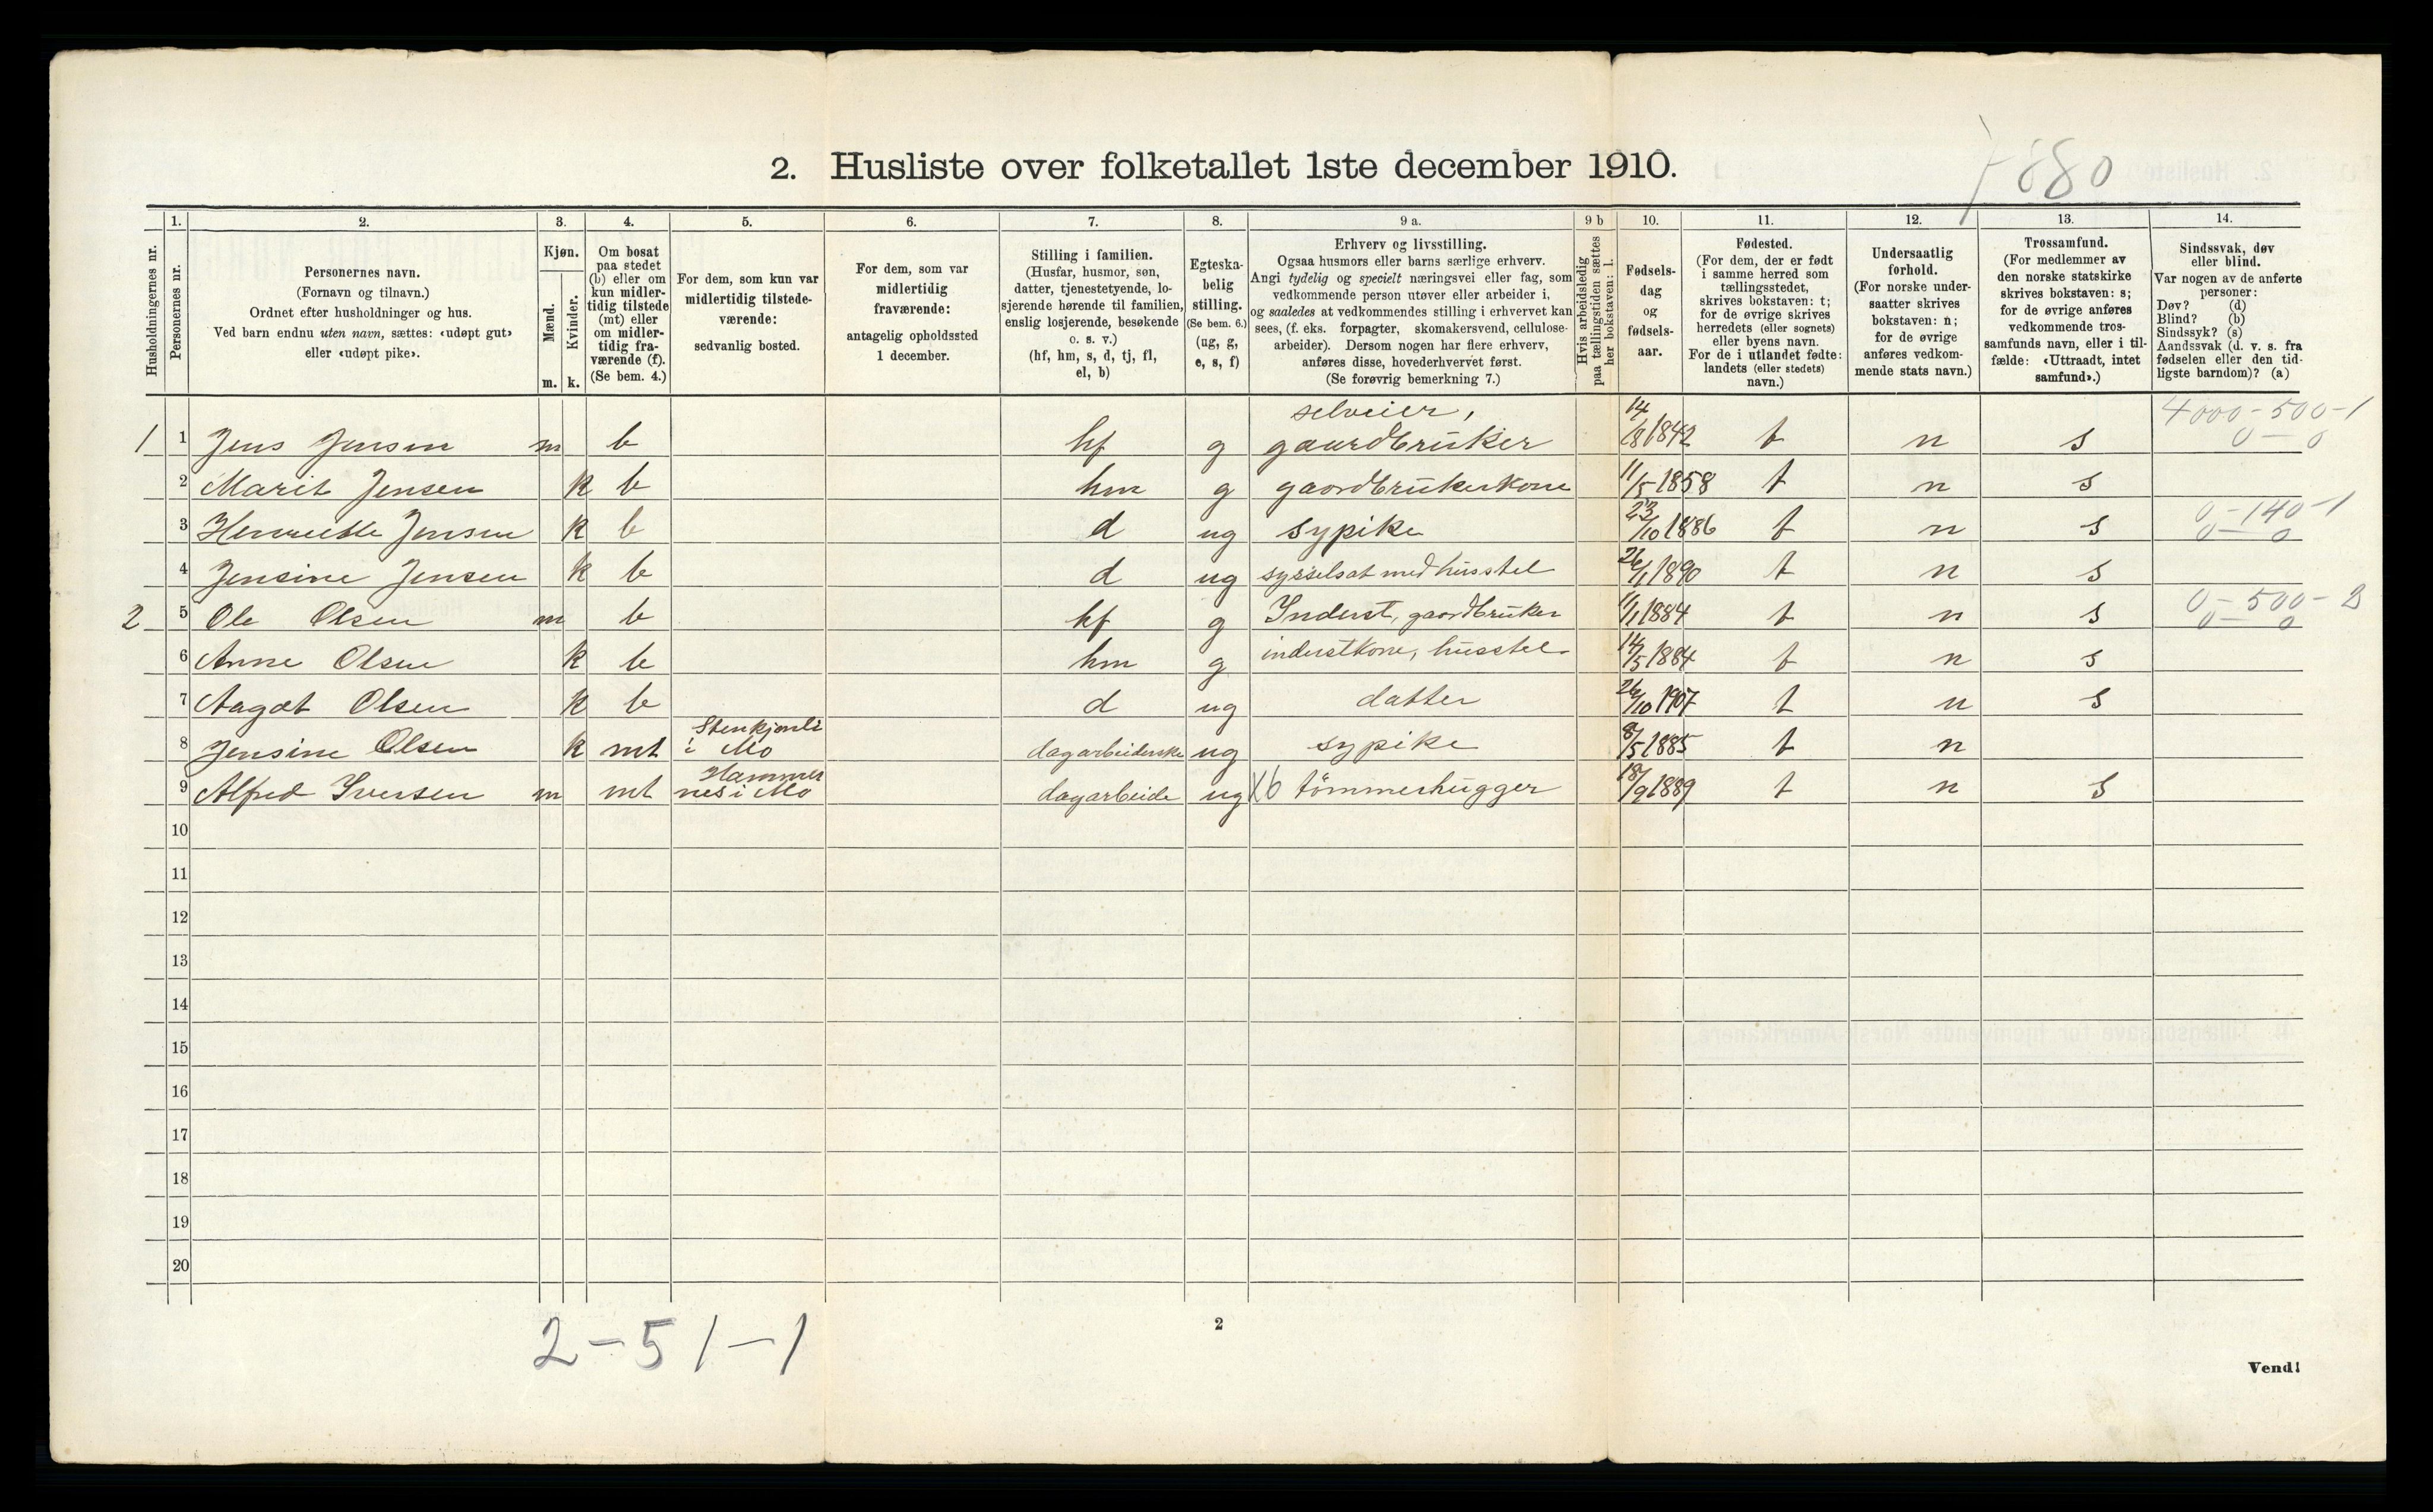 2. Husliste over folketallet 1ste december 1910.
880
Husholdningernes nr.
1.
Personernes nr.
2.
Personernes navn.
(Fornavn og tilnavn.)
Ordnet efter husholdninger og hus.
Ved barn endnu uten navn, sættes: «udøpt gut»
eller «udøpt pike».
3.
Kjøn.
Mænd.
Kvinder.
m. k.
4.
Om bosat
paa stedet
(b) eller om
kun midler-
tidig tilstede
(mt) eller
om midler-
tidig fra-
værende (f).
(Se bem. 4.)
5.
For dem, som kun var
midlertidig tilstede-
værende:
sedvanlig bosted.
6.
For dem, som var
midlertidig
fraværende:
antagelig opholdssted
1 december.
7.
Stilling i familien.
(Husfar, husmor, søn,
datter, tjenestetyende, lo-
sjerende hørende til familien,
enslig losjerende, besøkende
o. s. v.)
(hf, hm, s, d, tj, fl,
el, b)
8.
Egteska-
belig
stilling.
(Se bem. 6.)
(ug, g,
e, s, f)
9 a.
Erhverv og livsstilling.
Ogsaa husmors eller barns særlige erhverv.
Angi tydelig og specielt næringsvei eller fag, som
vedkommende person utøver eller arbeider i,
og saaledes at vedkommendes stilling i erhvervet kan
sees, (f. eks. forpagter, skomakersvend, cellulose-
arbeider). Dersom nogen har flere erhverv,
anføres disse, hovederhvervet først.
(Se forøvrig bemerkning 7.)
9 b
Hvis arbeidsledig
paa tællingstiden sættes
her bokstaven: l.
10.
Fødsels-
dag
og
fødsels-
aar.
11.
Fødested.
(For dem, der er født
i samme herred som
tællingsstedet,
skrives bokstaven: t;
for de øvrige skrives
herredets (eller sognets)
eller byens navn.
For de i utlandet fødte:
landets (eller stedets)
navn.)
12.
Undersaatlig
forhold.
(For norske under-
saatter skrives
bokstaven: n;
for de øvrige
anføres vedkom-
mende stats navn.)
13.
Trossamfund.
(For medlemmer av
den norske statskirke
skrives bokstaven: s;
for de øvrige anføres
vedkommende tros-
samfunds navn, eller i til-
fælde: «Uttraadt, intet
samfund».)
14.
Sindssvak, døv
eller blind.
Var nogen av de anførte
personer:
Døv? (d)
Blind? (b)
Sindssyk? (s)
Aandssvak (d. v. s. fra
fødselen eller den tid-
ligste barndom)? (a)
selveier, 4000-500-1
1 1 Jens Jensen m b hf g gaardbruker 14/8 1842 t n s 0-0
2 Marit Jensen k b hm g gaardbrukerkone 11/5-1858 t n s
3 Henriette Jensen k b d ug sypike 23/10 1886 t n s 0-140-1 0-0
4 Jensine Jensen k b d ug sysselsat med husstel 26/1 1890 t n s
2 5 Ole Olsen m b hf g Inderst, gaardbruker 11/1 1884 t n s 0-500-2 0-0
6 Anne Olsen k b hm g inderstkone, husstel 14/5 1884 t n s
7 Aagot Olsen k b d ug datter 26/10 1907 t n s
8 Jensine Olsen k mt i Mo dagarbeiderske ug sypike 8/5 1885 t n
Hammer
9 Alfred Iversen m mt nes i Mo dagarbeide ug X6 tömmerhugger 18/9 1889 t n s
10
11
12
13
14
15
16
17
18
19
20
2-51-1
2
Vend!